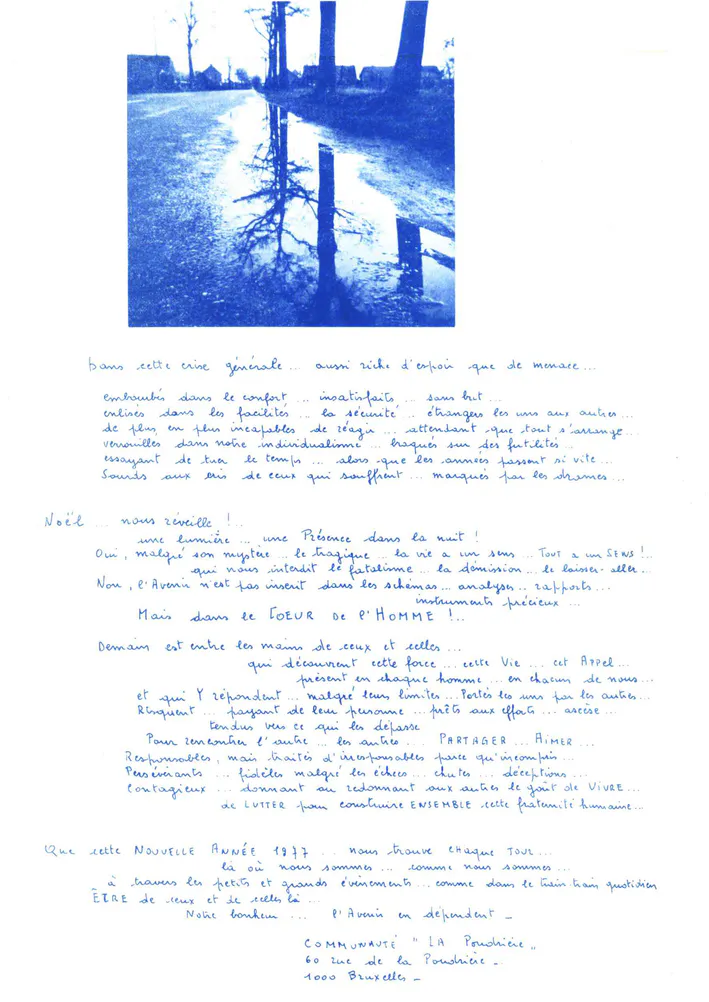 Dans cette crise générale ... aussi riche d'espoir que de menace ...
embourbés dans le confort ... insatisfaits ... sans but ...
enlisés dans les facilités ... la sécurité ... étrangers les uns aux autres ...
de plus en plus incapables de réagir ... attendant que tout s'arrange ...
verrouillés dans notre individualisme ... braqués sur des futilités ...
essayant de tuer le temps ... alors que les années passent si vite ...
Sourds aux cris de ceux qui souffrent ... marqués par les drames ...
Noël ... nous réveille !..
une lumière ... une Présence dans la nuit !
Oui, malgré son mystère ... le tragique ... la vie a un sens ... TOUT a un SENS !..
qui nous interdit le fatalisme ... la démission ... le laisser-aller ...
Non, l'Avenir n'est pas inscrit dans les schémas ... analyses .. rapports ...
instruments précieux ...
Mais dans le COEUR DE l'HOMME !..
Demain est entre les mains de ceux et celles ...
qui découvrent cette force ... cette Vie ... cet Appel ...
présent en chaque homme ... en chacun de nous ...
et qui Y répondent ... malgré leurs limites ... Portés les uns par les autres ...
Risquent ... payant de leur personne ... prêts aux efforts ... ascèse ...
tendus vers ce qui les dépasse
Pour rencontrer l'autre ... les autres ... PARTAGER ... AIMER ...
Responsables, mais traités d'irresponsables parce qu'incompris ...
Persévérants ... fidèles malgré les échecs ... chutes ... déceptions ...
Contagieux ... donnant ou redonnant aux autres le goût de VIVRE ...
de LUTTER pour construire ENSEMBLE cette fraternité humaine ...
Que cette NOUVELLE ANNÉE 1977 ... nous trouve CHAQUE JOUR ...
là où nous sommes ... comme nous sommes ...
à travers les petits et grands événements ... comme dans le train-train quotidien
ÊTRE de ceux et de celles là ...
Notre bonheur ... l'Avenir en dépendent _
COMMUNAUTÉ " LA Poudrière „
60 rue de la Poudrière _
1000 Bruxelles _